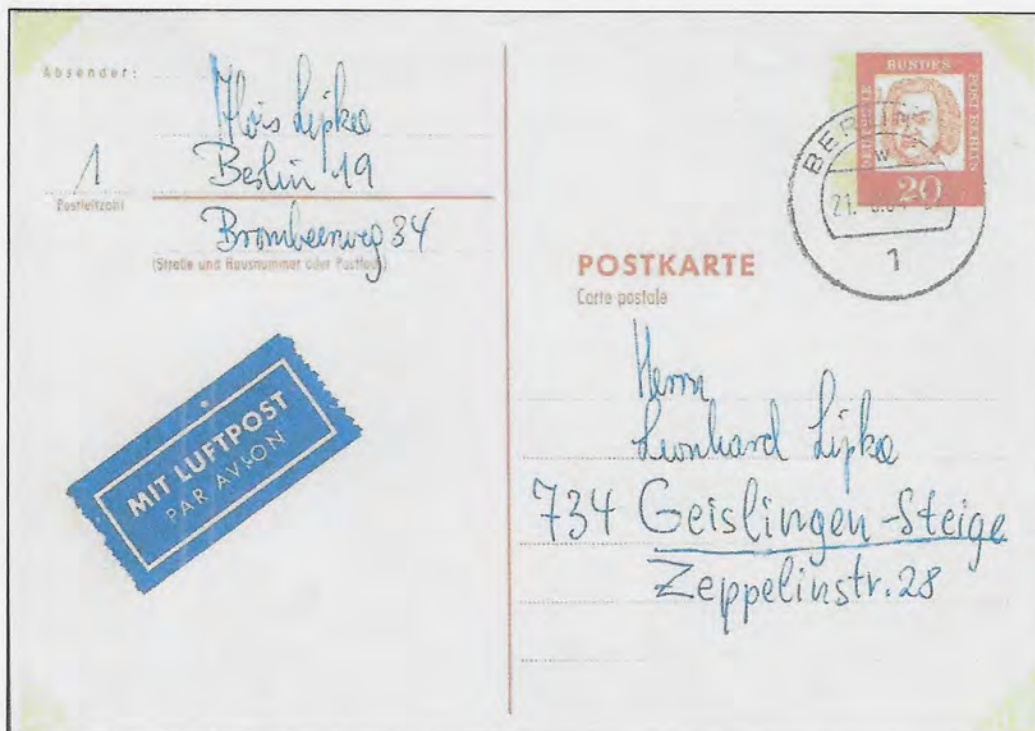 Absender:
Alois Lipka
1
Berlin 19
Postleitzahl
Brombeerweg 34
(Straße und Hausnummer oder Postfach)
MIT LUFTPOST
PAR AVION
DEUTSCHE
BUNDES
POST BERLIN
20
BERLIN
W
21.
1
POSTKARTE
Carte postale
Herrn
Leonhard Lipka
734 Geislingen-Steige
Zeppelinstr. 28